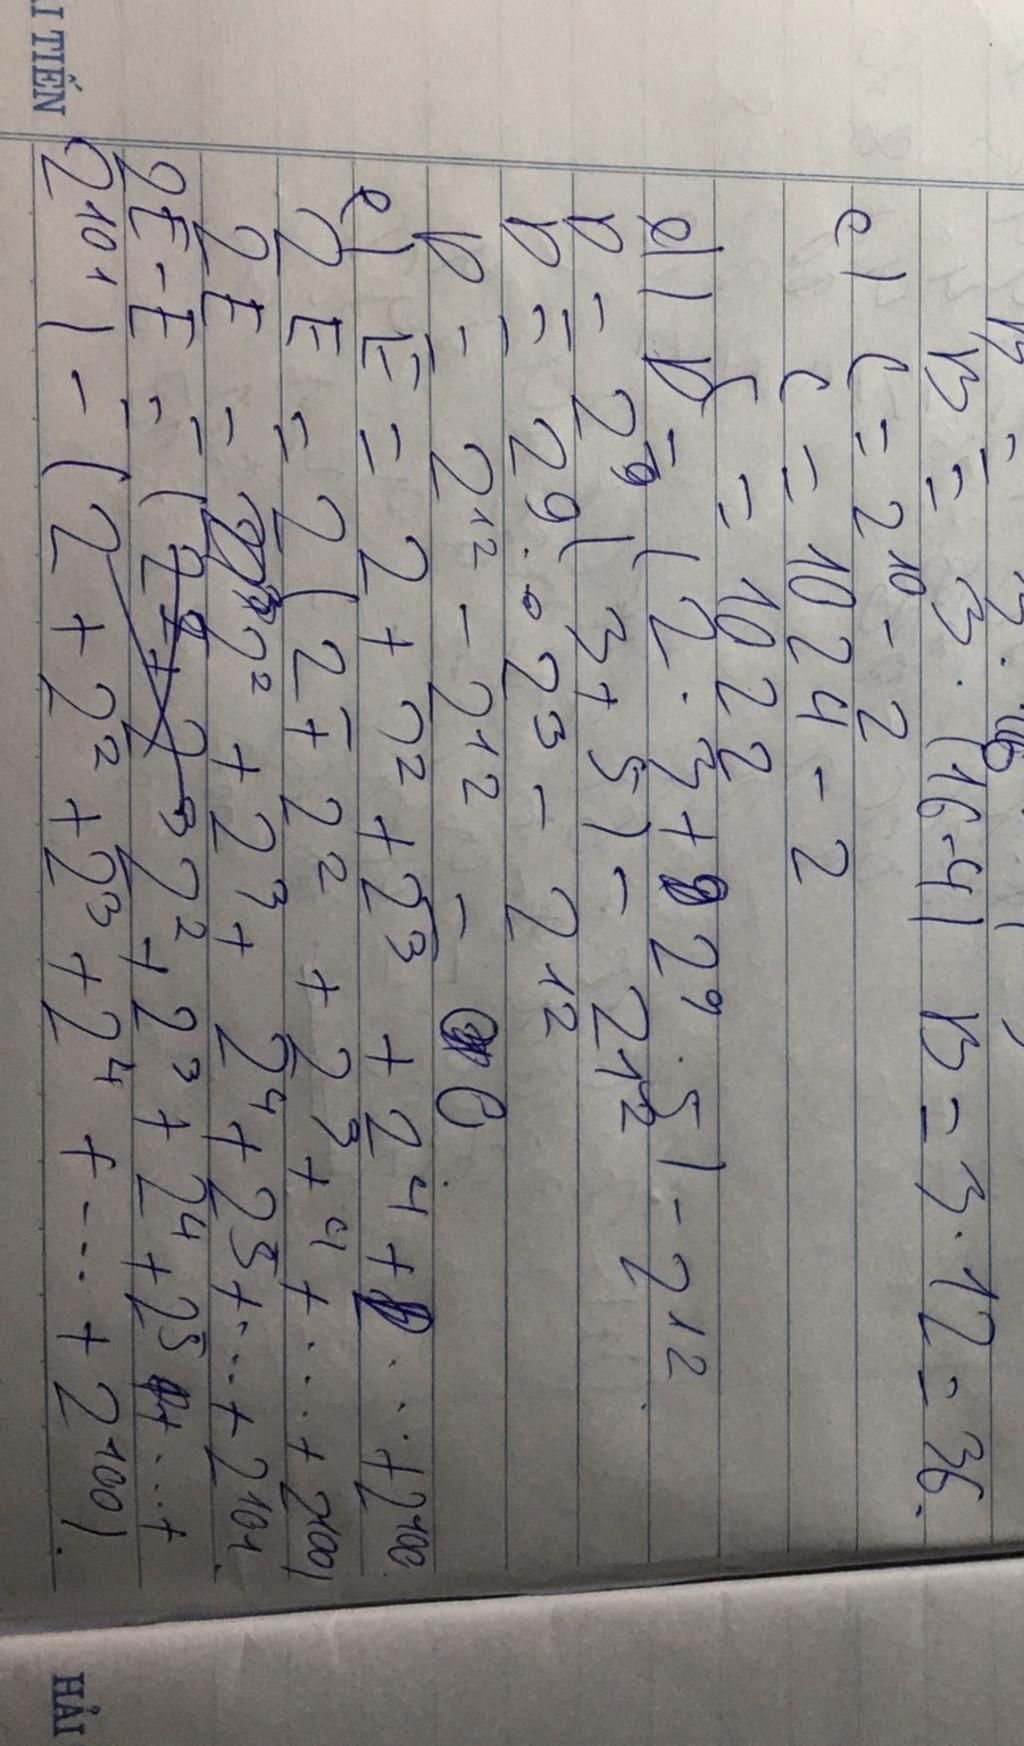 B = 3.(16-4) B = 3.12 = 36.
c) C = 2¹⁰ - 2
C = 1024 - 2
C = 1022
d) D = (2⁹.3 + 2⁹.5) - 2¹²
D = 2⁹(3+5) - 2¹²
D = 2⁹.2³ - 2¹²
D = 2¹² - 2¹² = 0
e) E = 2 + 2² + 2³ + 2⁴ + ... + 2¹⁰⁰.
2E = 2(2 + 2² + 2³ + ⁴ + ... + 2¹⁰⁰)
2E = 2² + 2³ + 2⁴ + 2⁵ + ... + 2¹⁰¹.
2E - E = (2² + 2³ + 2⁴ + 2⁵ + ... +
2¹⁰¹) - (2 + 2² + 2³ + 2⁴ + ... + 2¹⁰⁰).
ẢI TIẾN
HẢI